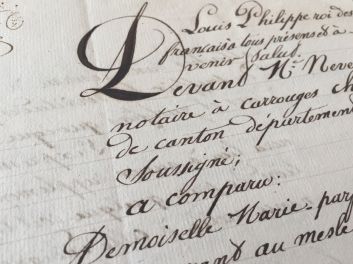 Louis Philippe roi des
français a tous présens et à
venir Salut.
Devant Me. Neve
notaire à Carrouges ch
de canton département
Soussigné;
a comparu:
Demoiselle Marie-
au mesle